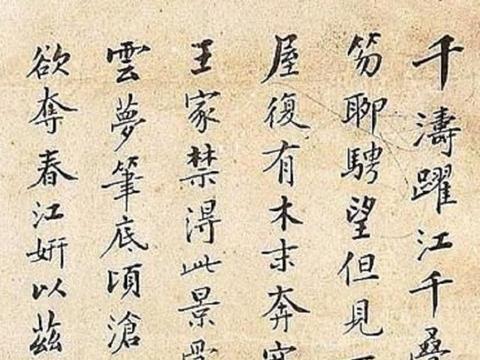 千濤躍江千疊
笏聊騁望但見
屋復有木末奔
王家禁得此景
雲夢筆底頃滄
欲奪春江妍以茲